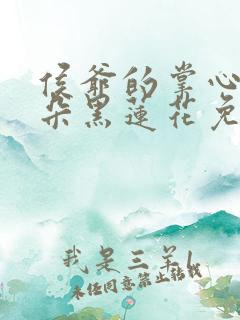 侯爷的掌心
朵黑莲花免
我是三羊l
未经同意禁止转载